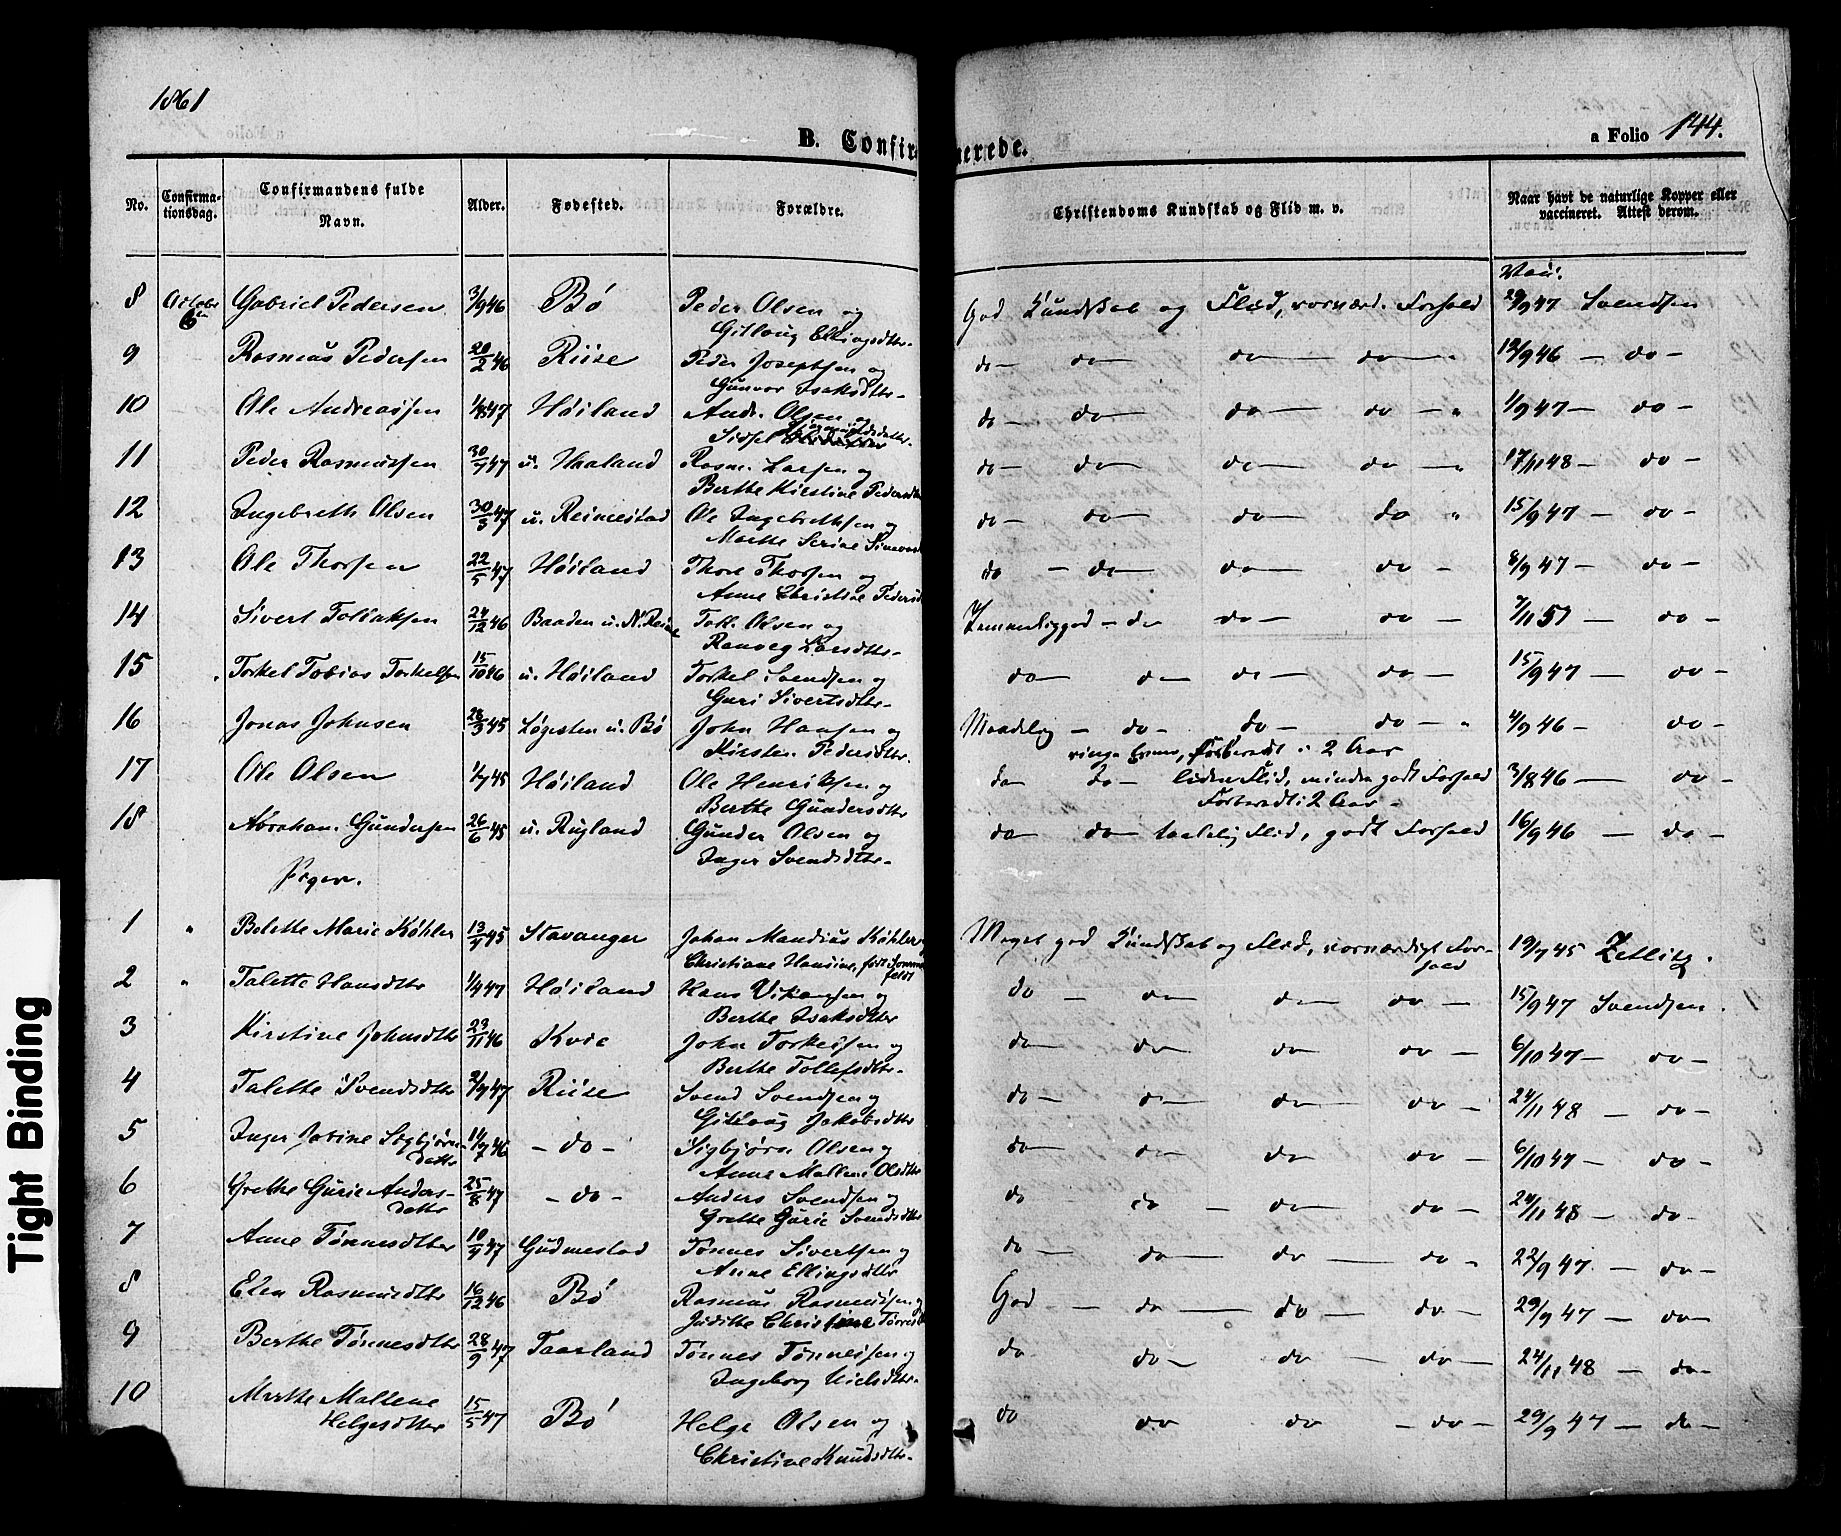 1861
B. Confirmerede.
a Folio 144.
No. Confirmationsdag. Confirmandens fulde Navn. Alder. Fødested. Forældre. Christendoms Kundskab og Flid m. v. Naar havt de naturlige Kopper eller vaccineret. Attest derom.
Vacc.
8 October 6te Gabriel Pedersen 3/9 46 Bø Peder Olsen og God Kundskab og Flid, vorværd. Forhold 29/9 47 Svendsen
Gitlaug Ellingsdttr.
9 Rasmus Pedersen 20/2 46 Riise Peder Josephsen og do do do do " 12/9 46 - do -
Gunvor Isaksdttr.
10 Ole Andreassen 47 Høiland Andr. Olsen og do do do do " 1/9 47 - do -
Sidsel
11 Peder Rasmussen 30/7 47 u. Haaland Rasm. Larsen og do do do do " 17/11 48 - do -
Berthe Kirstine Pedersdttr
12 Ingebreth Olsen 30/3 47 u. Reimestad Ole Ingebrethsen og do do do do " 15/9 47 - do -
Marthe Serine Simons
13 Ole Thorsen 22/5 47 Høiland Thore Thorsen og do do do do - 8/9 47 - do -
Anne Christine Peders
14 Sivert Tollaksen 24/12 46 Baaden u. N. Reime Toll. Olsen og Temmelig god - do do do - 7/11 51 - do -
Ranveg Larsdttr.
15 Torkel Tobias Torkelsen 15/10 46 u. Høiland Torkel Svendsen og do do do do - 15/9 47 - do -
Guri Sivertsdttr.
16 Jonas Johnsen 28/3 45 Løgesten u. Bø John Hansen og Maadelig - do - do - do - " 4/9 46 - do -
Kirsten Pedersdttr. ringe Evner, Forberedt i 2 Aar
17 Ole Olsen 1/7 45 Høiland Ole Henriksen og do do - liden Flid, mindre godt Forhold 3/8 46 - do -
Berthe Gundersdttr Forberedt i 2 Aar -
18 Abraham Gundersen 26/6 45 u. Rugland Gunder Olsen og do do taalelig Flid, godt Forhold 16/9 46 - do -
Inger Svendsdttr.
Piger.
1 " Bolette Marie Køhler 13/4 45 Stavanger Johan Mandius Køhler og Meget god Kundskab og Flid, vorværdigt Forhold 19/7 45 Zetlitz.
Christiane Hansine, født Sommerfeldt
2 " Talette Hansdttr 1/4 47 Høiland Hans Vikansen og do - do do do - 15/9 47 Svendsen.
Berthe Isaksdttr
3 Kirstine Johnsdttr 23/11 46 Kvie John Torkelsen og do do do do - 6/10 47 - do -
Berthe Tollefsdttr.
4 Talette Svendsdttr 2/7 47 Riise Svend Svendsen og do - do - do do - 24/11 48 - do -
Gitlaug Jakobsdttr
5 Inger Jobine Sigbjørnsdatter 11/7 46 - do - Sigbjørn Olsen og do do do do - 6/10 47 - do -
Anne Mallene Olsdttr
6 Grethe Gurie Andersdatter 25/8 47 - do - Anders Svendsen og do do - do do - 24/11 48 - do -
Grethe Gurie Svendsdttr
7 Anne Tønnesdtter 10/4 47 Gudmestad Tønnes Sivertsen og do - do - do do - 22/9 47 - do -
Anne Ellingsdttr
8 Elen Rasmusdttr 16/12 46 Bø Rasmus Rasmussen og God - do - do - do - 29/9 47 - do -
Judithe Christine Tørres
9 Berthe Tønnesdttr 28/9 47 Taarland Tønnes Tønnesen og do do - do - do - 24/11 48 - do -
Ingeborg Nielsdttr.
10 Marthe Mallene Helgesdtter 15/5 47 Bø Helge Olsen og do do do - do - 29/9 47 - do -
Christine Knudsdttr.
Tight Binding